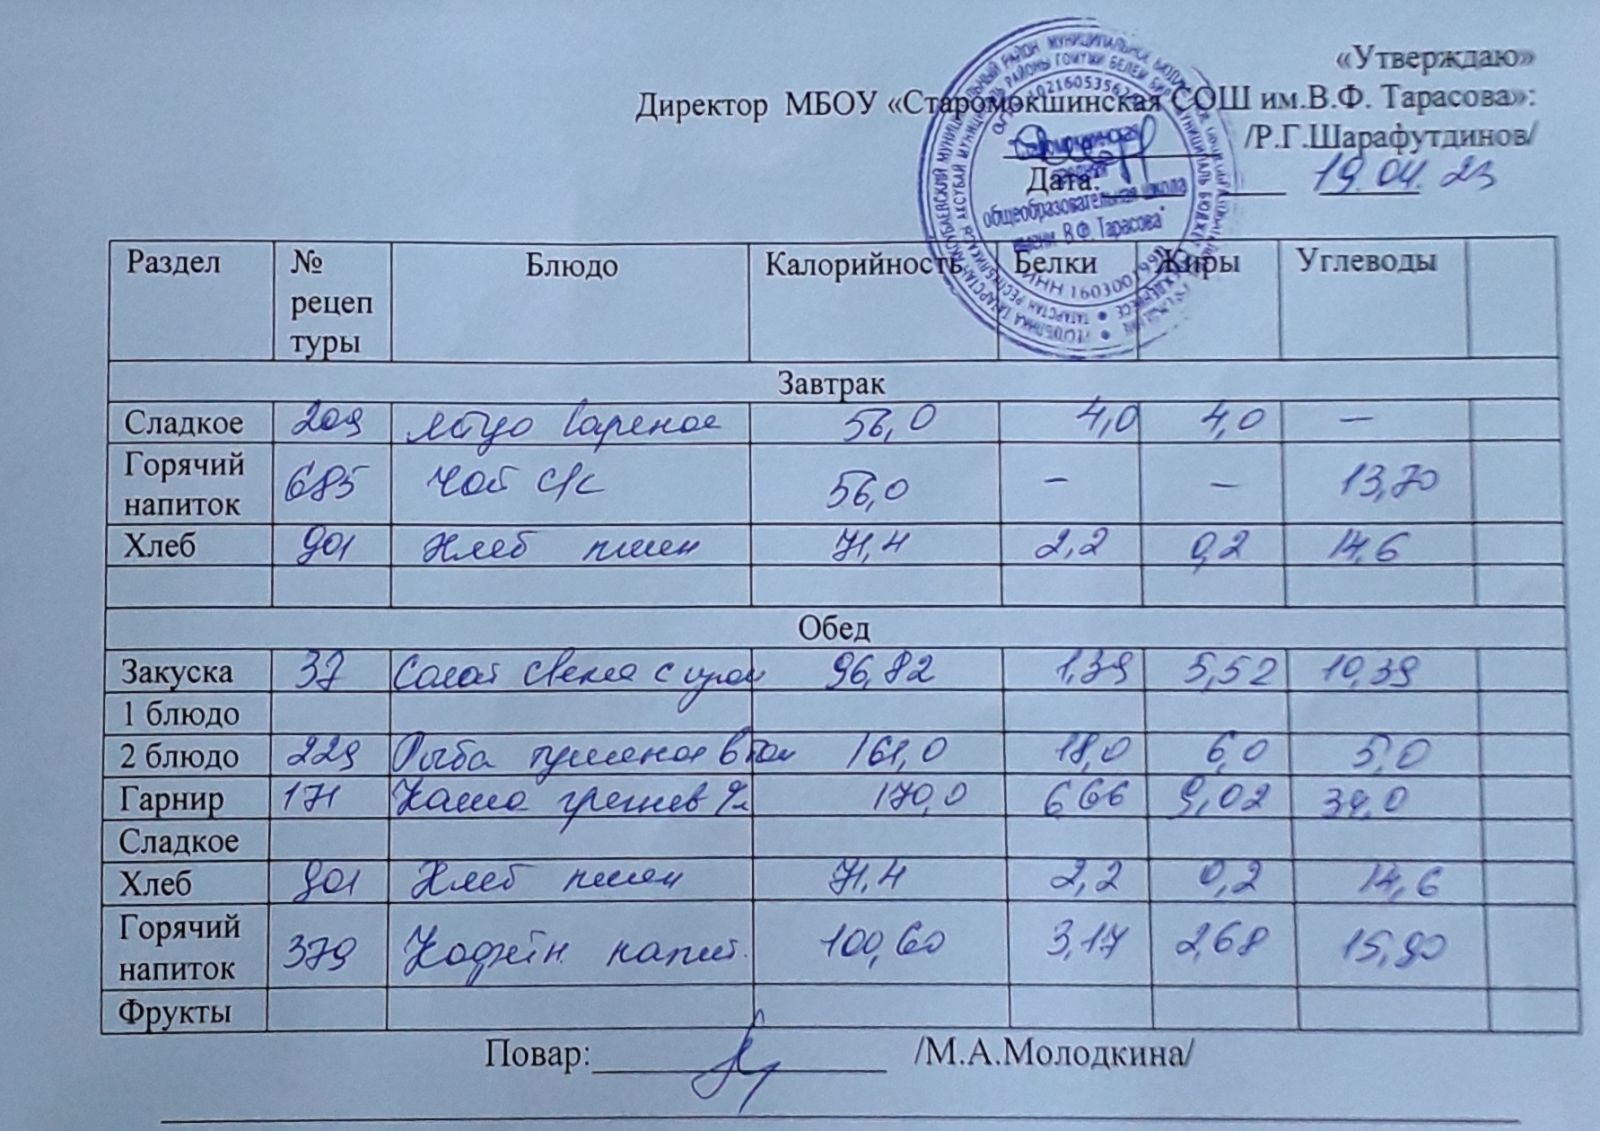 «Утверждаю»
Директор МБОУ «Старомокшинская СОШ им.В.Ф. Тарасова»:
/Р.Г.Шарафутдинов/
Дата: 19.04.23
Старомокшинская
средняя
общеобразовательная школа
имени В.Ф. Тарасова"
Раздел № рецеп туры Блюдо Калорийность Белки Жиры Углеводы
Завтрак
Сладкое 209 яйцо вареное 56,0 4,0 4,0 –
Горячий напиток 685 Чай с/с 56,0 – – 13,70
Хлеб 901 Хлеб пшен 71,4 2,2 0,2 14,6
Обед
Закуска 37 Салат свекла с 96,82 1,39 5,52 10,39
1 блюдо
2 блюдо 229 Рыба тушеная в том 161,0 18,0 6,0 5,0
Гарнир 171 Каша гречнев 170,0 6 66 9,02 34,0
Сладкое
Хлеб 901 Хлеб пшен 71,4 2,2 0,2 14,6
Горячий напиток 379 Кофейн напит. 100,60 3,17 2,68 15,90
Фрукты
Повар: /М.А.Молодкина/